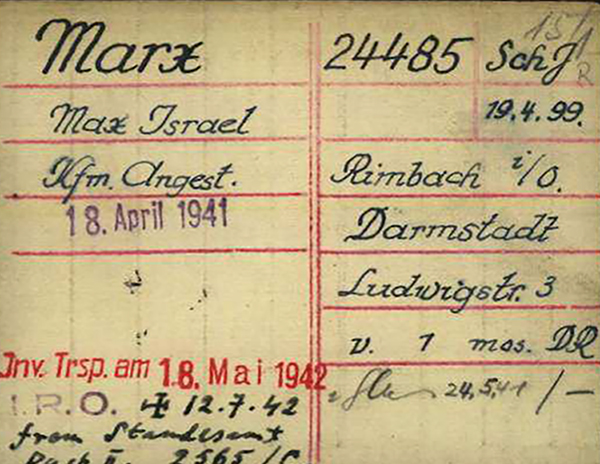 Marx
Max Israel
Kfm. Angest.
18. April 1941
Inv. Trsp. am 18. Mai 1942
I.R.O. 12.7.42
from Standesamt
Dach II. 2565/C
15/1
R
24485 SchJ
19.4.99.
Rimbach i/O.
Darmstadt
Ludwigstr. 3
v. 1 mos. DR
24.5.41 /—